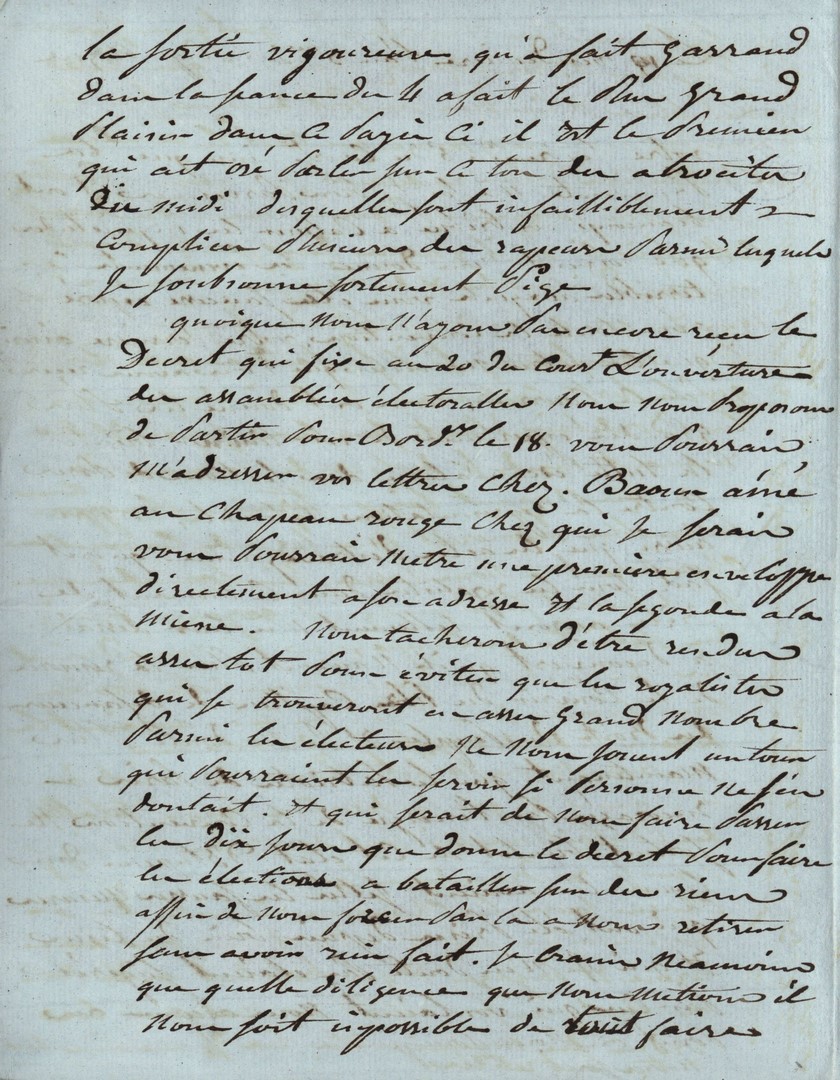 la sortie vigoureuse qu'a fait Garraud
dans la seance du 4 a fait le plus grand
plaisir dans ce payis ci il est le premier
qui ait osé parler sur ce ton des atrocites
du midi desquelles sont infailliblement
complices plusieurs des rapeurs parmi lesquels
je soubsonne fortement
quoique nous n'ayons pas encore reçu le
Decret qui fixe au 20 du Court L'ouverture
des assemblées électoralles nous nous proposons
de partir pour Bordx le 18. vous pourrais
m'adresser vos lettres chez. ainé
au Chapeau rouge chez qui je serais
vous pourrais metre une premiere enveloppe
directement a son adresse et la segonde a la
miene. nous tacherons d'être rendus
asses tot pour éviter que les royalistes
qui se trouveront en asses grand nombre
parmi les électeurs ne nous jouent un tour
qui pourraient les servir si personne ne s'en
doutait. et qui serait de nous faire passer
les dix jours que donne le décret pour faire
les élections a batailler sur des riens
affin de nous forcer par la a nous retirer
sans avoir rien fait. je crains neamoins
que quelle diligence que nous metions il
nous soit impossible de tout faire